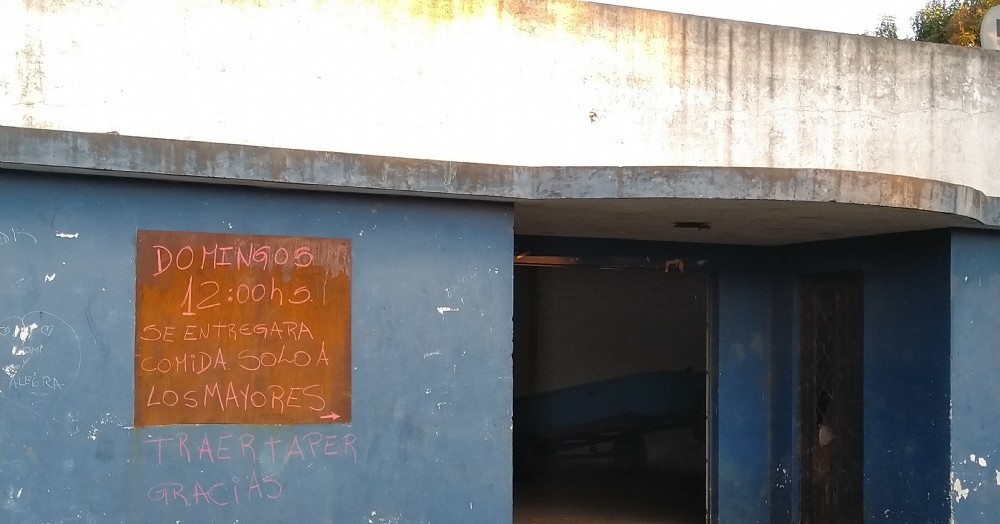 DOMINGOS
12:00hs.
SE ENTREGARA
COMIDA SOLO A
LOS MAYORES
TRAER TAPER
GRACIAS
ALEGRA